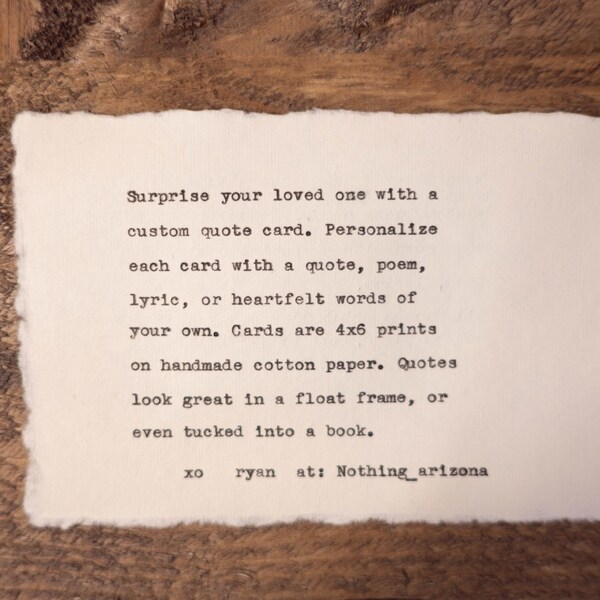 Surprise your loved one with a
custom quote card. Personalize
each card with a quote, poem,
lyric, or heartfelt words of
your own. Cards are 4x6 prints
on handmade cotton paper. Quotes
look great in a float frame, or
even tucked into a book.
xo ryan at: Nothing_arizona